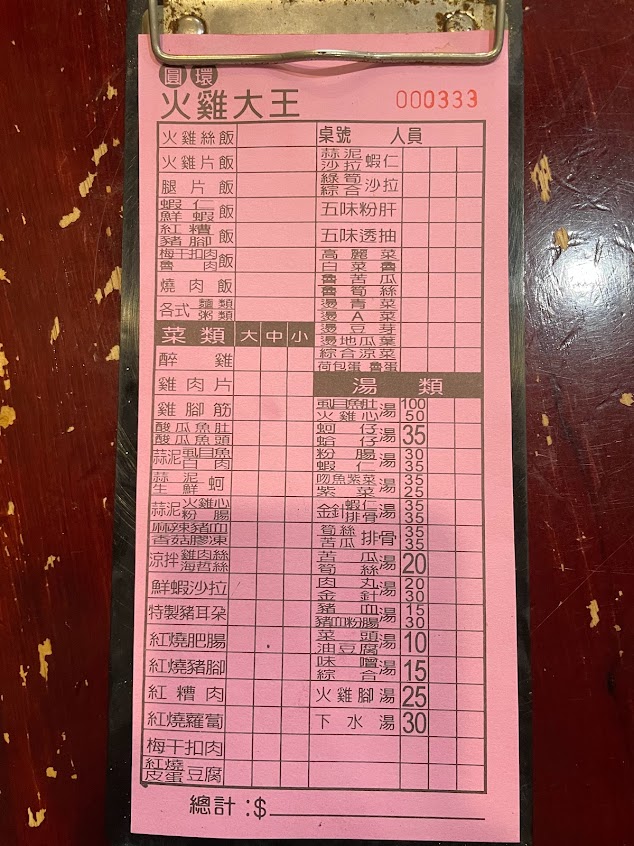 圓環
火雞大王
000333
火雞絲飯
火雞片飯
腿片飯
蝦仁 鮮蝦 飯
紅糟 豬腳 飯
梅干扣肉 魯肉 飯
燒肉飯
各式 麵類 粥類
菜類 大 中 小
醉雞
雞肉片
雞腳筋
酸瓜魚肚
酸瓜魚頭
蒜泥 虱目魚 白肉
蒜泥 生鮮 蚵
蒜泥 火雞心 粉腸
麻辣豬血
香菇膠凍
涼拌 雞肉絲 海哲絲
鮮蝦沙拉
特製豬耳朵
紅燒肥腸
紅燒豬腳
紅糟肉
紅燒羅蔔
梅干扣肉
紅燒 皮蛋 豆腐
桌號 人員
蒜泥 沙拉 蝦仁
綠筍 綜合 沙拉
五味粉肝
五味透抽
高麗菜
白菜魯
魯苦瓜
魯筍絲
燙青菜
燙A菜
燙豆芽
燙地瓜葉
綜合涼菜
荷包蛋 魯蛋
湯類
虱目魚肚 火雞心 湯 100 50
蚵仔 蛤仔 湯 35
粉腸 蝦仁 湯 30 35
吻魚紫菜 紫菜 湯 35 25
金針 蝦仁 排骨 湯 35 35
筍絲 苦瓜 排骨 35 35
苦瓜 筍絲 湯 20
肉丸 金針 湯 20 30
豬血 豬血粉腸 湯 15 30
菜頭 油豆腐 湯 10
味噌 綜合 湯 15
火雞腳湯 25
下水湯 30
總計:$